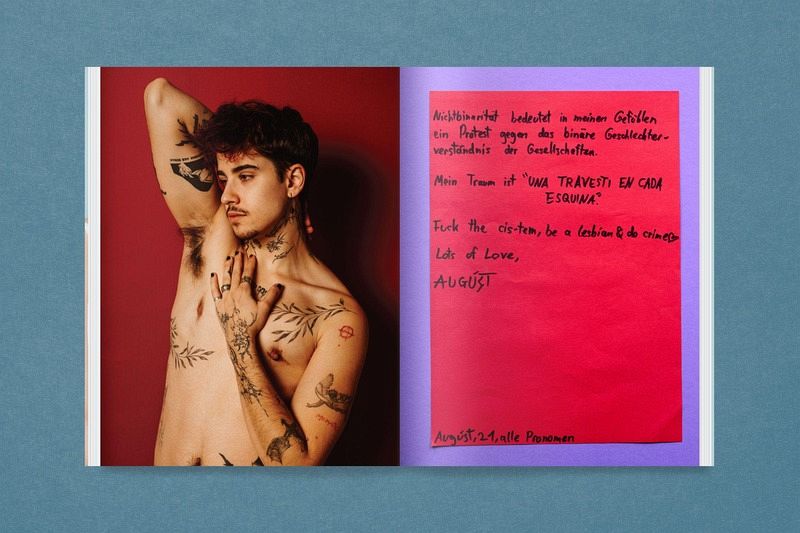 Nichtbinarität bedeutet in meinen Gefühlen
ein Protest gegen das binäre Geschlechter-
verständnis der Gesellschaften.
Mein Traum ist "UNA TRAVESTI EN CADA
ESQUINA."
Fuck the cis-tem, be a lesbian & do crimes
Lots of Love,
AUGÚST
Augúst, 21, alle Pronomen